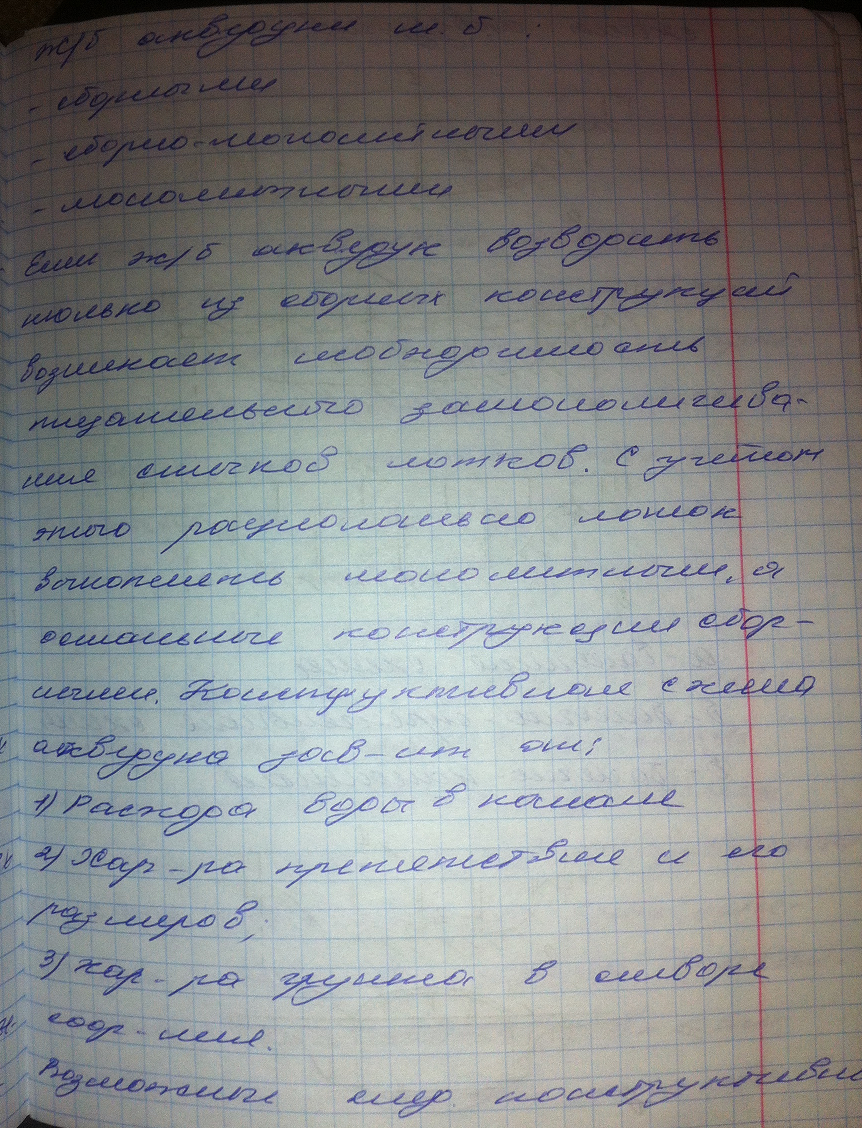 ж/б акведуки м. б :
- сборными
- сборно-монолитными
- монолитными
Если ж/б акведук возводить
только из сборных конструкций
возникает необходимость
тщательного замоноличива-
ния стыков лотков. С учётом
этого рационально лоток
выполнять монолитным, а
остальные конструкции сбор-
ными. Конструктивная схема
акведука зав-ит от:
1) Расхода воды в канале
2) Хар-ра препятствия и его
размеров;
3) хар-ра грунта в створе
соор-ния.
Возможные след. конструктивн